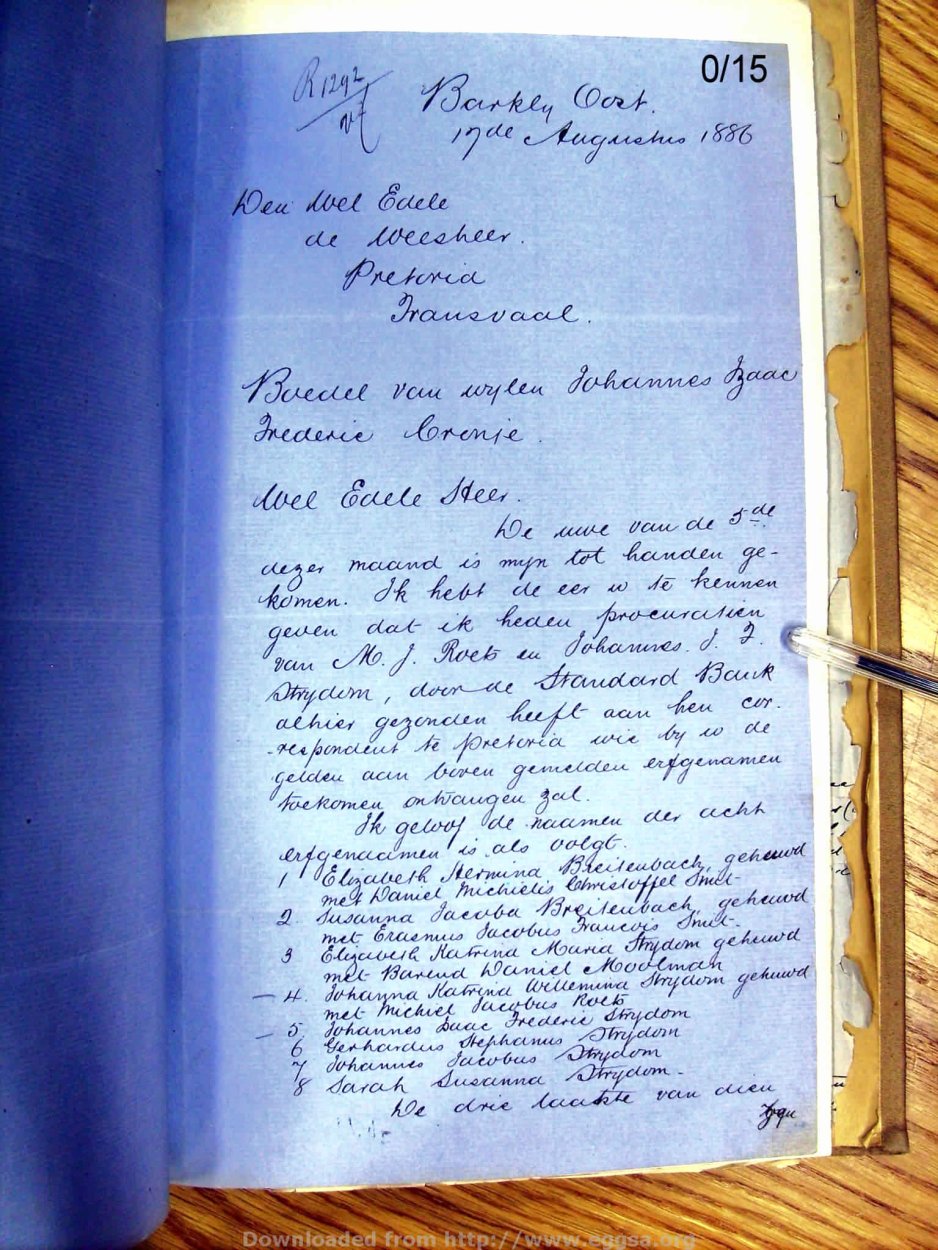 0/15
R1292
Barkly Oost.
17de Augustus 1886
Den Wel Edele
de Weesheer.
Pretoria
Transvaal.
Boedel van wylen Johannes Izaac
Frederic Cronje.
Wel Edele Heer.
De uwe van de 5de
dezer maand is myn tot handen ge-
komen. Ik hebt de eer u te kennen
geven dat ik heden procuratien
van M. J. Roets en Johannes. J. F.
Strydom, door de Standard Bank
alhier gezonden heeft aan hen cor-
-respondent te Pretoria wie by u de
gelden aan boven gemelden erfgenamen
toekomen ontvangen zal.
Ik geloof de naamen der acht
erfgenaamen is als volgt.
1 Elizabeth Hermina Breitenbach, gehuwd
met Daniel Michielis Christoffel Smit-
2. Susanna Jacoba Breitenbach, gehuwd
met Erasmus Jacobus Francois Smit-
3 Elizabeth Katrina Maria Strydom gehuwd
met Barend Daniel Moolman
- 4. Johanna Katrina Willemina Strydom gehuwd
met Michiel Jacobus Roets
- 5. Johannes Isaac Frederic Strydom
6 Gerhardus Stephanus Strydom
7 Johannes Jacobus Strydom
8 Sarah Susanna Strydom-
De drie laatste van dien
zyn
Downloaded from http://www.eggsa.org